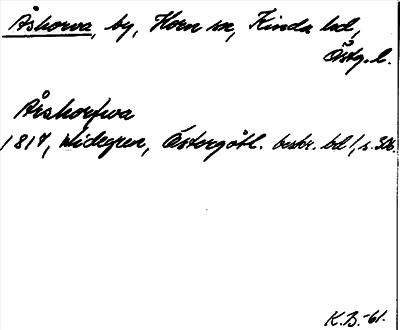 Åskorva, by, Horn sn, Kinda hd,
Östg. l.
Årskorfwa
1817, Widegren, Östergötl. beskr. bd 1, s.
K.B.-61.